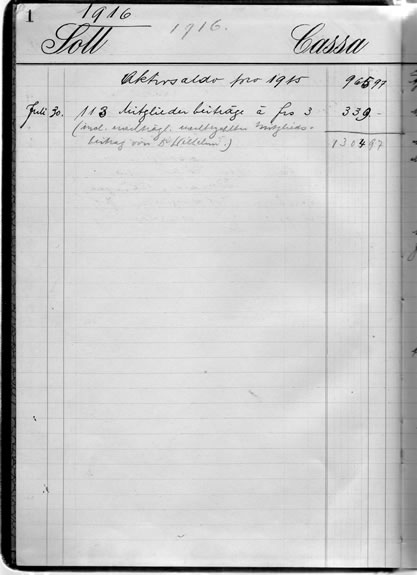 1
1916
1916.
Soll Cassa
Aktivsaldo pro 1915 965 97
Juli 30. 113 Mitgliederbeiträge à frs 3 339.-
(incl. nachträgl. Mitglieds-
beitrag von Dr )
1304 97